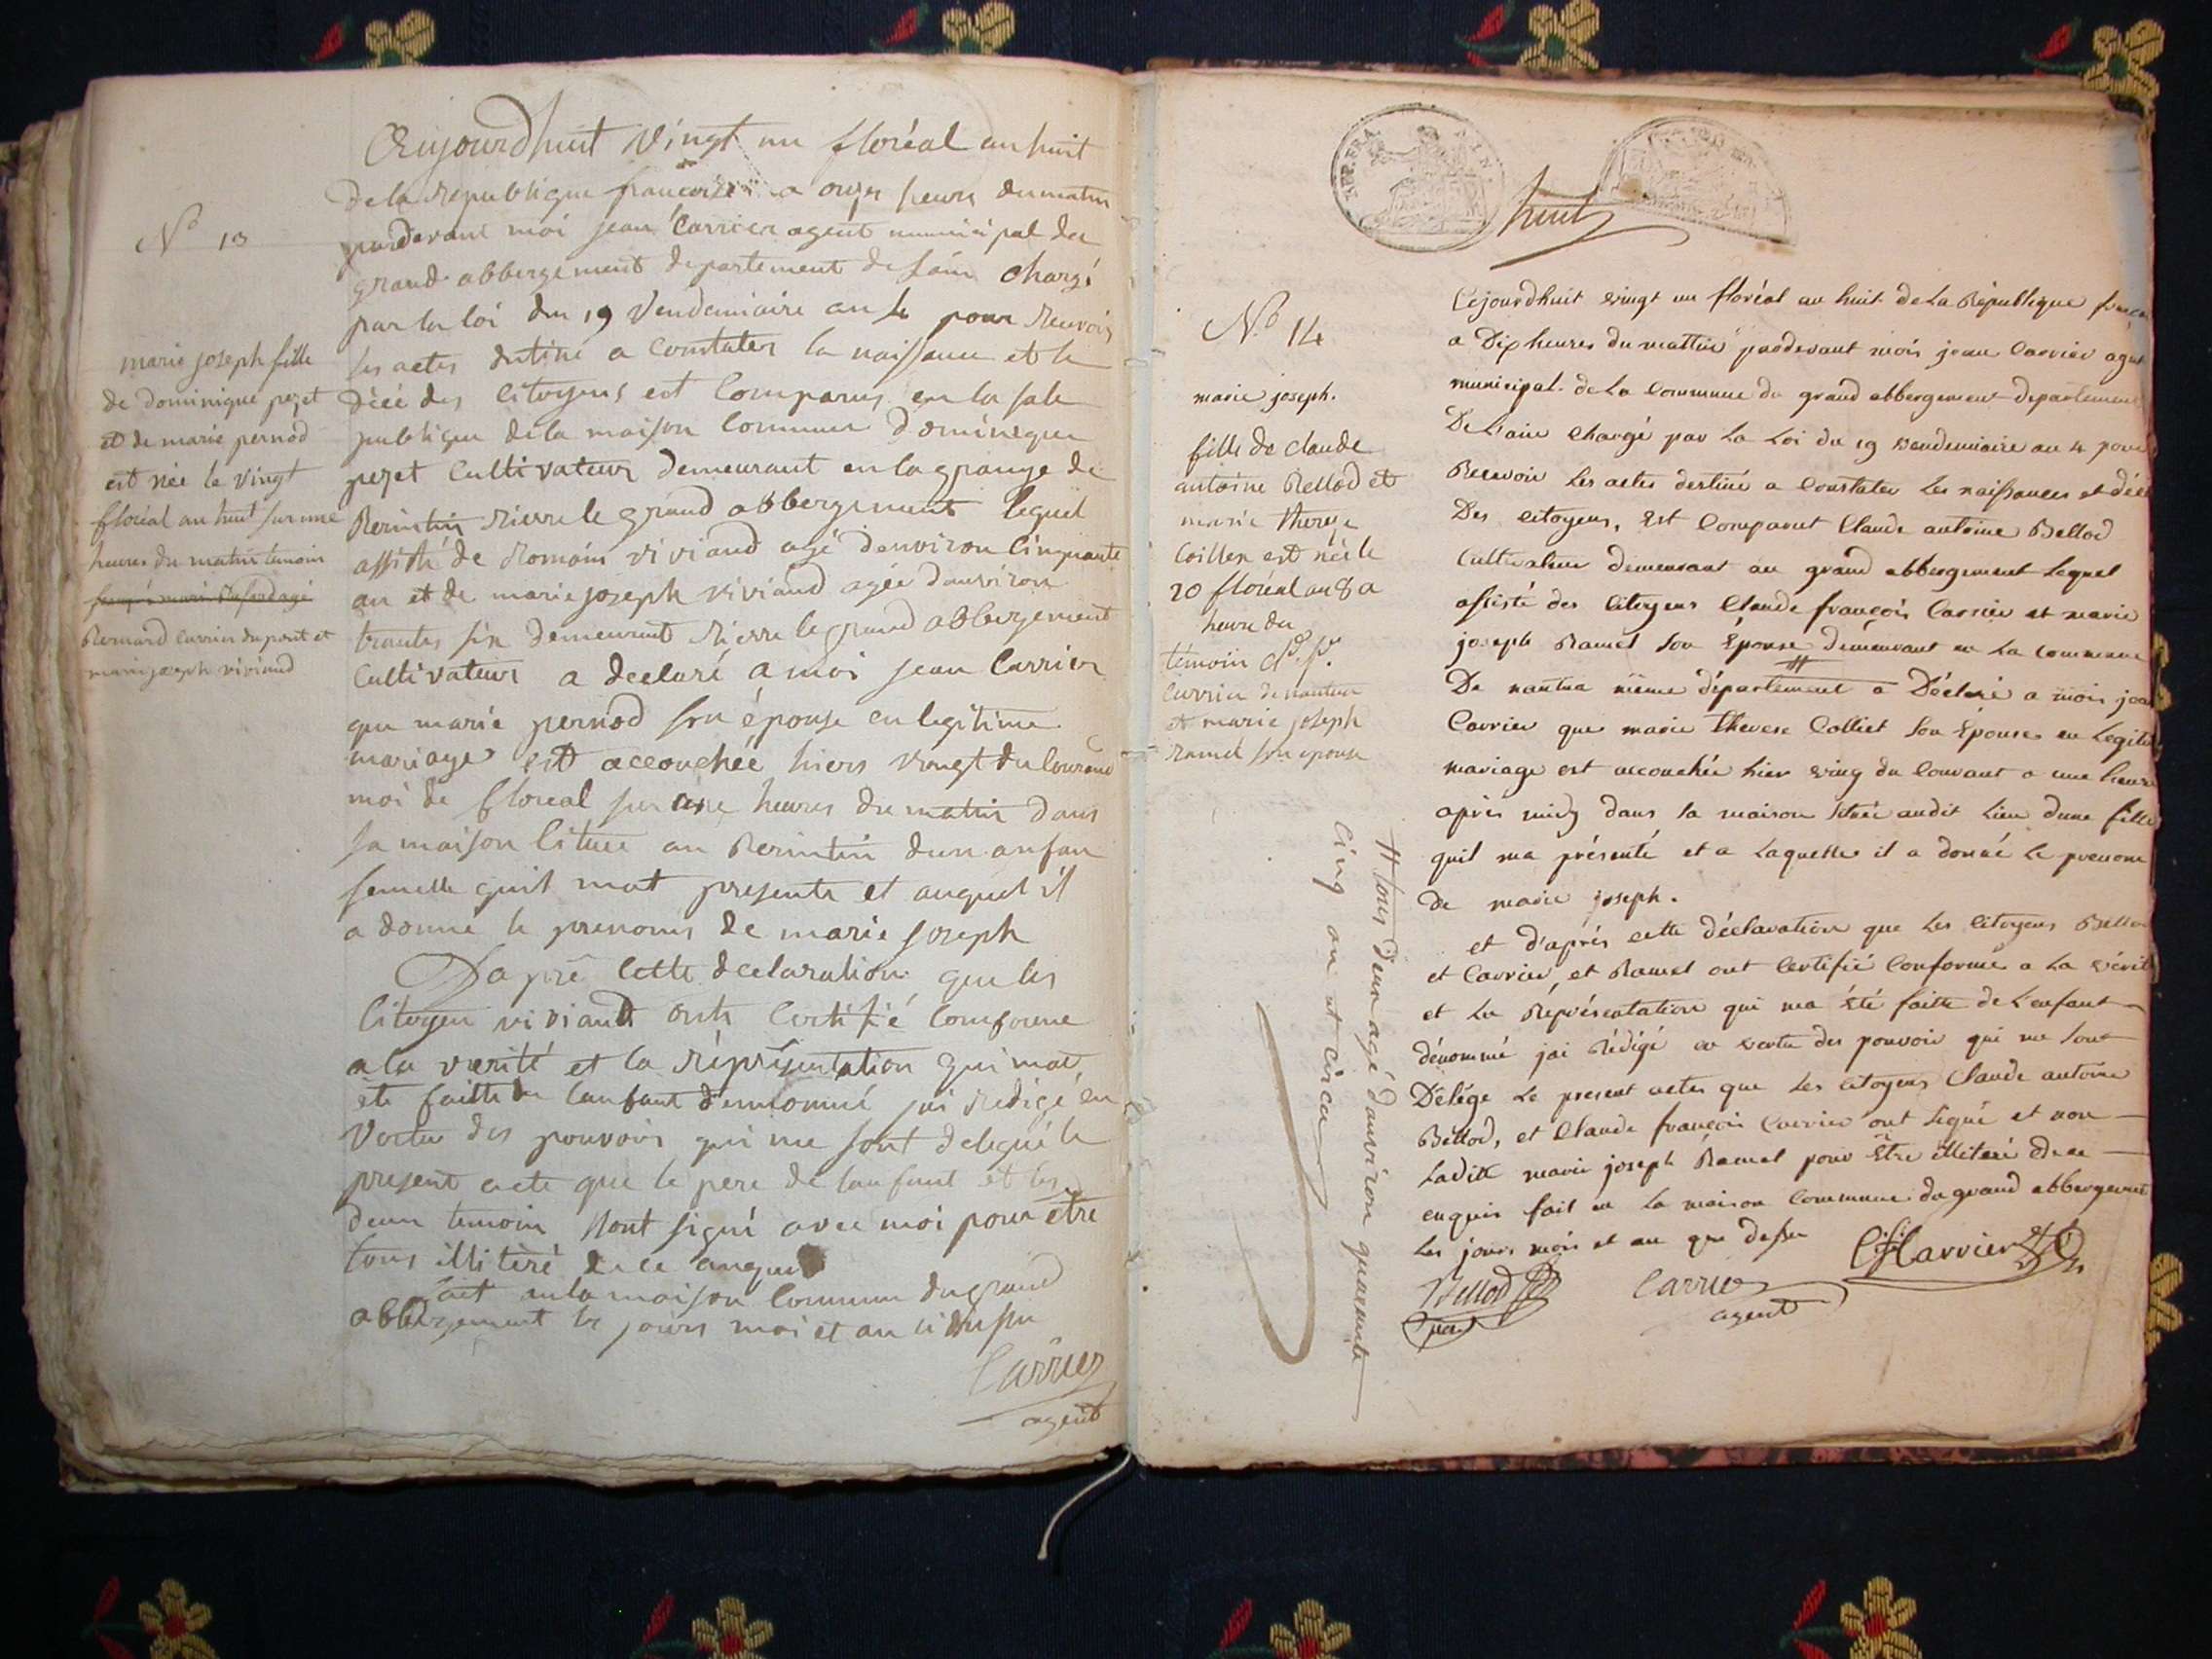 N° 13
marie joseph fille
de dominique pezet
et de marie pernod
est née le vingt
floréal an huit sur une
heures du matin temoin
Bernard Carrier dupont et
marie joseph viviand
Aujourdhuit vingt un floréal an huit
de la republique francoise a onze heures du matin
pardevant moi jean Carrier agent municipal du
grand abbergement departement de lain chargé
par la loi du 19 Vendemiaire an 4 pour recevoir
les actes destiné a constater la naissance et le
décé des citoyens est comparus en la sale
publique de la maison commune dominique
pezet cultivateur demeurant en la grange de
rierre le grand abbergement lequel
assisté de Romain viviand agé denviron cinquante
an et de marie joseph viviand agée denviron
trantes six demeurant rierre le grand abbergement
cultivateur a declaré a moi jean Carrier
que marie pernod son épouse en legitime
mariage est accouchée hiers vingt du courant
moi de floreal sur une heures du matin dans
sa maison cituee au dun anfan
femelle quil mat presente et auquel il
a donné le prenoms de marie joseph
Da prè cette declaration que les
citoyen viviand onts certifié conforme
a la verité et la réprésentation qui mat
été faitte de lanfant dennommé jai redigé en
vertu des pouvoirs qui me sont delegué le
present acte que le pere de lanfant et les
deux temoin nont signé avec moi pour etre
tous illiteré de ce anquis
fait en la maison commun du grand
abbergement les jours moi et an ci dessu
Carrier
agent
huit
N° 14
marie joseph.
fille de claude
antoine Bellod et
marie therese
Colliex est née le
20 floréal an 8 a
heure du
temoin
Carrier de nantua
et marie joseph
ramel son epouse
Cejourdhuit vingt un floréal an huit de la République
a Dix heures du mattin pardevant mois jean Carrier agent
municipal de la commune du grand abbergement departement
De L'ain chargé par la Loi du 19 vendemiaire an 4 pour
Recevoir les actes destiné a constater les naissances et
Des citoyens, est comparut Claude antoine Bellod
Cultivateur demeurant au grand abbergement lequel
assisté des citoyens Claude françois Carrier et marie
joseph Ramel son Épouse demeurant en la commune
De nantua même département # a Déclaré a mois jean
Carrier que marie therese Colliet son Épouse en
mariage est accouchée hier ving du courant a une heure
après midy dans sa maison située audit Lieu dune fille
quil ma présenté et a laquelle il a donné le prenom
de marie joseph.
et d'après cette déclaration que les citoyens Bellod
et Carrier, et Ramel ont certifié conforme a la vérité
et la Représentation qui ma été faitte de l'enfant
dénommé jai rédigé en vertu des pouvoir qui me sont
Délégé le present actes que les citoyens Claude antoine
Bellod, et Claude françois Carrier ont signé et non
ladite marie joseph Ramel pour être illiteré de ce
enquis fait en la maison commune du grand abbergement
les jours mois et an que dessu
Bellod
Carrier
agent
Carrier
# tous deux agé danviron quarante
cinq an et circa